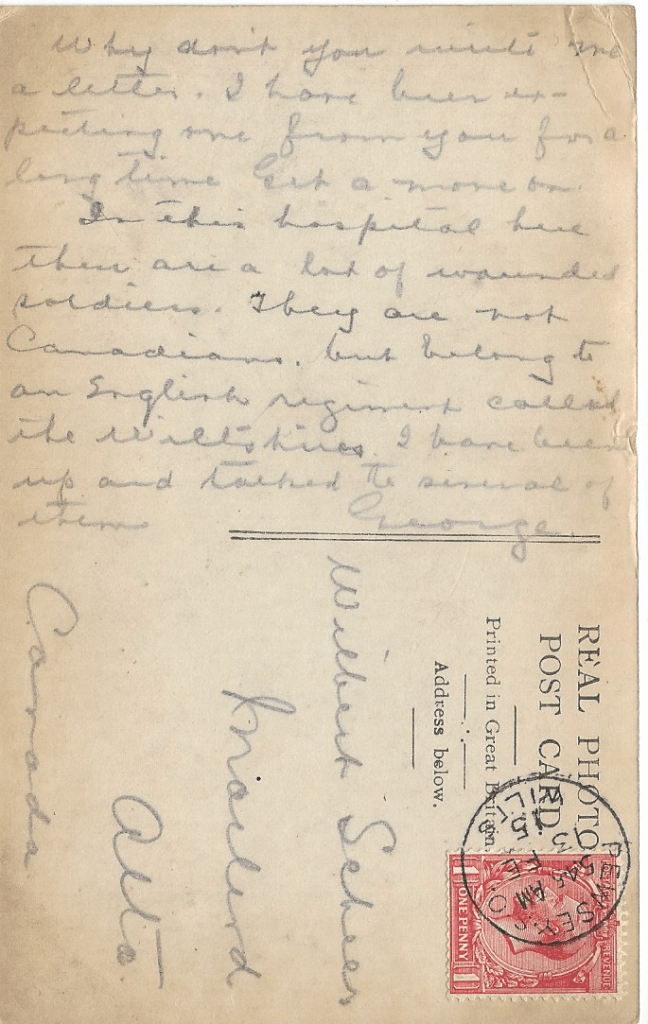 Why don't you write me
a letter. I have been ex-
pecting one from you for a
long time Get a move on.
In this hospital here
there are a lot of wounded
soldiers. They are not
Canadians, but belong to
an English regiment called
the Wiltshires. I have been
up and talked to several of
them George.
REAL PHOTO
POST CARD.
Printed in Great Britain.
Address below.
Wilbert
Alta.
Canada
PEWSEY
5.45 AM
FE
15
REVENUE
ONE PENNY